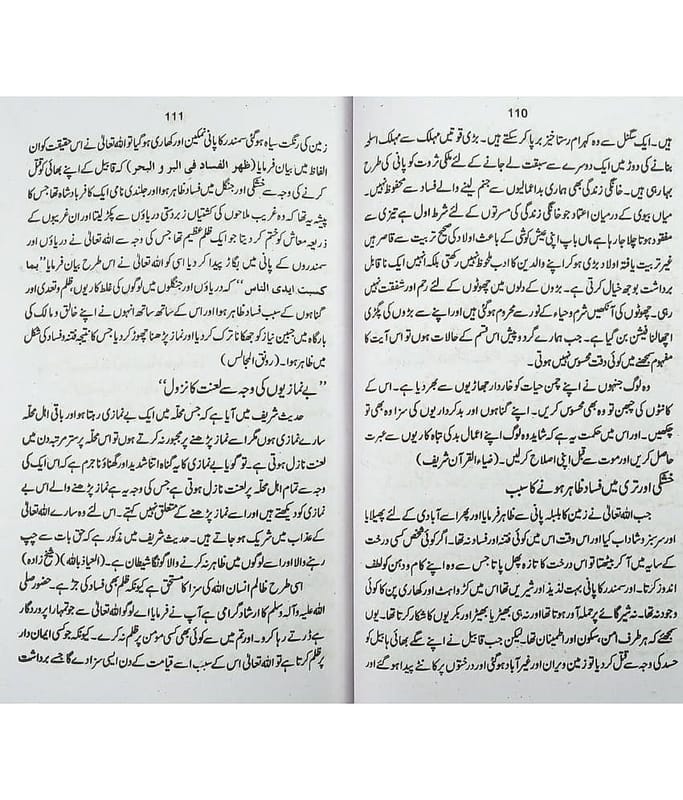 110
ہیں۔ ایک سگنل سے وہ کہرام رستاخیز برپا کر سکتے ہیں۔ بڑی قوتیں مہلک سے مہلک اسلحہ
بنانے کی دوڑ میں ایک دوسرے سے سبقت لے جانے کے لئے ملکی ثروت کو پانی کی طرح
بہا رہی ہیں۔ خانگی زندگی بھی ہماری بداعمالیوں سے جنم لینے والے فساد سے محفوظ نہیں۔
میاں بیوی کے درمیان اعتماد جو خانگی زندگی کی مسرتوں کے لئے شرط اول ہے تیزی سے
مفقود ہوتا چلا جا رہا ہے ماں باپ اپنی عیش کوشی کے باعث اولاد کی صحیح تربیت سے قاصر ہیں
غیر تربیت یافتہ اولاد بڑی ہو کر اپنے والدین کا ادب ملحوظ نہیں رکھتی بلکہ انہیں ایک نا قابل
برداشت بوجھ خیال کرتی ہے۔ بڑوں کے دلوں میں چھوٹوں کے لئے رحم اور شفقت نہیں
رہی۔ چھوٹوں کی آنکھیں شرم و حیاء کے نور سے محروم ہو گئی ہیں اور اپنے سے بڑوں کی پگڑی
اچھالنا فیشن بن گیا ہے۔ جب ہمارے گرد و پیش اس قسم کے حالات ہوں تو اس آیت کا
مفہوم سمجھنے میں کوئی دقت محسوس نہیں ہوتی۔
وہ لوگ جنہوں نے اپنے چمن حیات کو خاردار جھاڑیوں سے بھر دیا ہے۔ اس کے
کانٹوں کی چبھن تو وہ بھی محسوس کریں۔ اپنے گناہوں اور بدکرداریوں کی سزا وہ بھی تو
چکھیں۔ اور اس میں حکمت یہ ہے کہ شاید وہ لوگ اپنے اعمال بد کی تباہ کاریوں سے عبرت
حاصل کریں اور موت سے قبل اپنی اصلاح کر لیں۔ (ضیاء القرآن شریف)
خشکی اور تری میں فساد ظاہر ہونے کا سبب
جب اللہ تعالیٰ نے زمین کا بلبلہ پانی سے ظاہر فرمایا اور پھر اسے آبادی کے لئے پھیلایا
اور سرسبز و شاداب کیا اور اس وقت اس میں کوئی فتنہ اور فساد نہ تھا۔ اگر کوئی شخص کسی درخت
کے سایہ میں آ کر بیٹھتا تو اس درخت کا تازہ پھل پاتا جس سے وہ اپنے کام و دہن کو لطف
اندوز کرتا۔ اور سمندر کا پانی بہت لذیذ اور شیریں تھا اس میں کڑواہٹ اور کھاری پن کا کوئی
وجود نہ تھا۔ نہ شیر گائے پر حملہ آور ہوتا تھا اور نہ ہی بھیڑیا بھیڑ اور بکریوں کا شکار کرتا تھا۔ یوں
سمجھئے کہ ہر طرف امن، سکون اور اطمینان تھا۔ لیکن جب قابیل نے اپنے سگے بھائی ہابیل کو
حسد کی وجہ سے قتل کر دیا تو زمین ویران اور غیر آباد ہو گئی اور درختوں پر کانٹے پیدا ہو گئے اور
111
زمین کی رنگت سیاہ ہو گئی سمندر کا پانی نمکین اور کھاری ہو گیا تو اللہ تعالیٰ نے اس حقیقت کو ان
الفاظ میں بیان فرمایا (ظهر الفساد فى البر و البحر) کہ قابیل کے اپنے بھائی کو قتل
کرنے کی وجہ سے خشکی اور جنگل میں فساد ظاہر ہوا اور جلندی نامی ایک کافر بادشاہ تھا جس کا
پیشہ یہ تھا کہ وہ غریب ملاحوں کی کشتیاں زبردستی دریاؤں سے پکڑ لیتا اور ان غریبوں کے
ذریعہ معاش کو ختم کر دیتا جو ایک ظلم عظیم تھا جس کی وجہ سے اللہ تعالیٰ نے دریاؤں اور
سمندروں کے پانی میں بگاڑ پیدا کر دیا اسی کو اللہ تعالیٰ نے اس طرح بیان فرمایا ”بما
كسبت ايدى الناس“ کہ دریاؤں اور جنگلوں میں لوگوں کی غلط کاریوں، ظلم و تعدی اور
گناہوں کے سبب فساد ظاہر ہوا اور اس کے ساتھ ساتھ انہوں نے اپنے خالق و مالک کی
بارگاہ میں جبین نیاز کو جھکانا ترک کر دیا اور نماز پڑھنا چھوڑ کر دیا جس کا نتیجہ فتنہ و فساد کی شکل
میں ظاہر ہوا۔ (رونق المجالس)
”بے نمازیوں کی وجہ سے لعنت کا نزول“
حدیث شریف میں آیا ہے کہ جس محلّہ میں ایک بے نمازی رہتا ہو اور باقی اہل محلہ
سارے نمازی ہوں مگر اسے نماز پڑھنے پر مجبور نہ کرتے ہوں تو اس محلّہ پر ستر مرتبہ دن میں
لعنت نازل ہوتی ہے۔ تو گویا بے نمازی کا یہ گناہ اتنا شدید اور گھناؤنا جرم ہے کہ اس ایک کی
وجہ سے تمام اہل محلہ پر لعنت نازل ہوتی ہے جس کی وجہ یہ ہے نماز پڑھنے والے اس بے
نمازی کو دیکھتے ہیں اور اسے نماز پڑھنے کے متعلق نہیں کہتے۔ اس لئے وہ سارے اللہ تعالیٰ
کے عذاب میں شریک ہو جاتے ہیں۔ حدیث شریف میں مذکور ہے کہ حق بات سے چپ
رہنے والا اور اسے لوگوں میں ظاہر نہ کرنے والا گونگا شیطان ہے۔ (العیاذ باللہ) (شیخ زادہ)
اسی طرح ظالم انسان اللہ کی سزا کا مستحق ہے کیونکہ ظلم بھی فساد کی جڑ ہے۔ حضور صلی
اللہ علیہ وآلہ وسلم کا ارشاد گرامی ہے آپ نے فرمایا اے لوگو اللہ تعالیٰ سے جو تمہارا پروردگار
ہے ڈرتے رہا کرو۔ اور تم میں سے کوئی بھی کسی مؤمن پر ظلم نہ کرے۔ کیونکہ جو کسی ایمان دار
پر ظلم کرتا ہے تو اللہ تعالیٰ اس کے سبب اسے قیامت کے دن ایسی سزا دے گا جسے برداشت